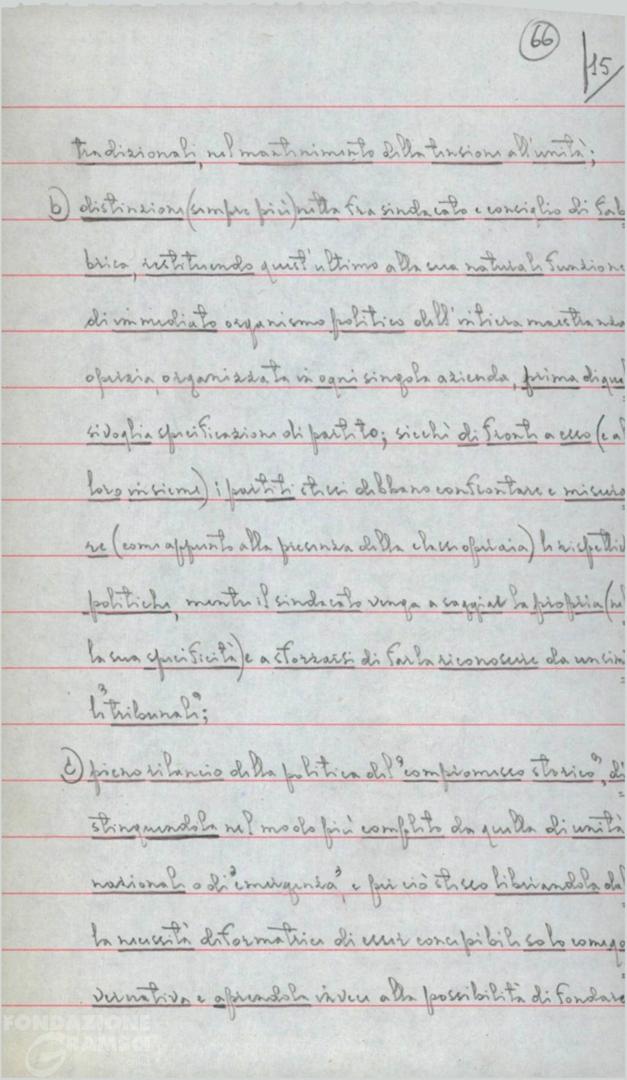 66
15
tradizionali, nel mantenimento della tensione all'unità;
b) distinzione (sempre più) netta fra sindacato e consiglio di fab
brica, restituendo quest'ultimo alla sua naturale funzione
di immediato organismo politico dell'intiera maestranza
operaia, organizzata in ogni singola azienda, prima di qua
sivoglia specificazione di partito; sicché di fronte a esso (e a
loro insieme) i partiti stessi debbano confrontare e misura
re (come appunto alla presenza della classe operaia) le rispettiv
politiche, mentre il sindacato venga a saggiar la propria (ne
la sua specificità) e a sforzarsi di farla riconoscere da un simi
le "tribunale";
c) pieno rilancio della politica del "compromesso storico", di
stinguendola nel modo più completo da quella di unità
nazionale o di "emergenza", e per ciò stesso liberandola dal
la necessità deformatrice di esser concepibile solo come go
vernativa e aprendola invece alla possibilità di fondare
FONDAZIONE
GRAMSCI